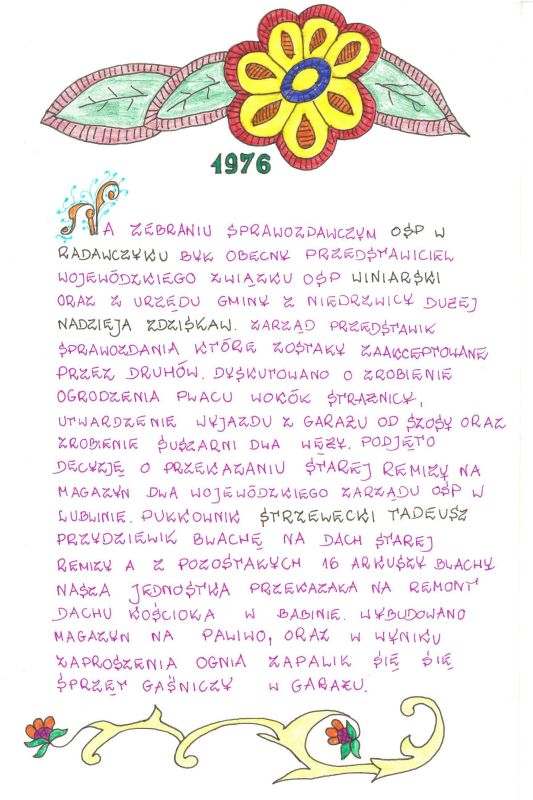 1976
NA ZEBRANIU SPRAWOZDAWCZYM OSP W
RADAWCZYKU BYŁ OBECNY PRZEDSTAWICIEL
WOJEWÓDZKIEGO ZWIĄZKU OSP WINIARSKI
ORAZ Z URZĘDU GMINY Z NIEDRZWICY DUŻEJ
NADZIEJA ZDZISŁAW. ZARZĄD PRZEDSTAWIŁ
SPRAWOZDANIA KTÓRE ZOSTAŁY ZAAKCEPTOWANE
PRZEZ DRUHÓW. DYSKUTOWANO O ZROBIENIE
OGRODZENIA PLACU WOKÓŁ STRAŻNICY,
UTWARDZENIE WYJAZDU Z GARAŻU OD SZOSY ORAZ
ZROBIENIE SUSZARNI DLA WĘŻY. PODJĘTO
DECYZJĘ O PRZEKAZANIU STAREJ REMIZY NA
MAGAZYN DLA WOJEWÓDZKIEGO ZARZĄDU OSP W
LUBLINIE. PUŁKOWNIK STRZEWECKI TADEUSZ
PRZYDZIELIŁ BLACHĘ NA DACH STAREJ
REMIZY A Z POZOSTAŁYCH 16 ARKUSZY BLACHY
NASZA JEDNOSTKA PRZEKAZAŁA NA REMONT
DACHU KOŚCIOŁA W BABINIE. WYBUDOWANO
MAGAZYN NA PALIWO, ORAZ W WYNIKU
ZAPROSZENIA OGNIA ZAPALIŁ SIĘ SIĘ
SPRZĘT GAŚNICZY W GARAŻU.